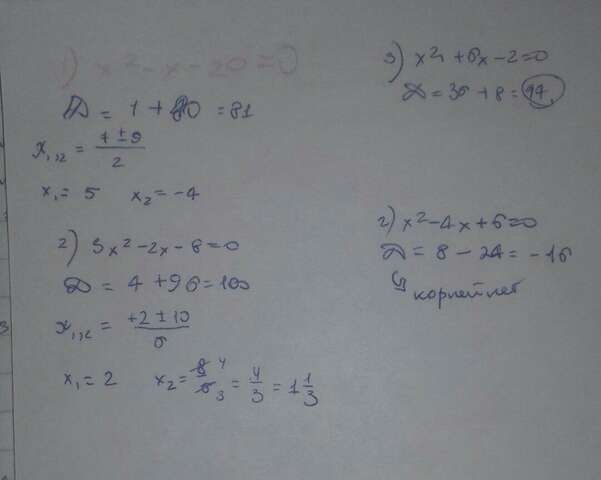 1) x² - x - 20 = 0
D = 1 + 80 = 81
x₁,₂ = (1 ± 9)/2
x₁ = 5 x₂ = -4
2) 3x² - 2x - 8 = 0
D = 4 + 96 = 100
x₁,₂ = (+2 ± 10)/6
x₁ = 2 x₂ = 8/6 4/3 = 4/3 = 1 1/3
3) x² + 6x - 2 = 0
D = 36 + 8 = 44
г) x² - 4x + 6 = 0
D = 8 - 24 = -16
↳ корней нет